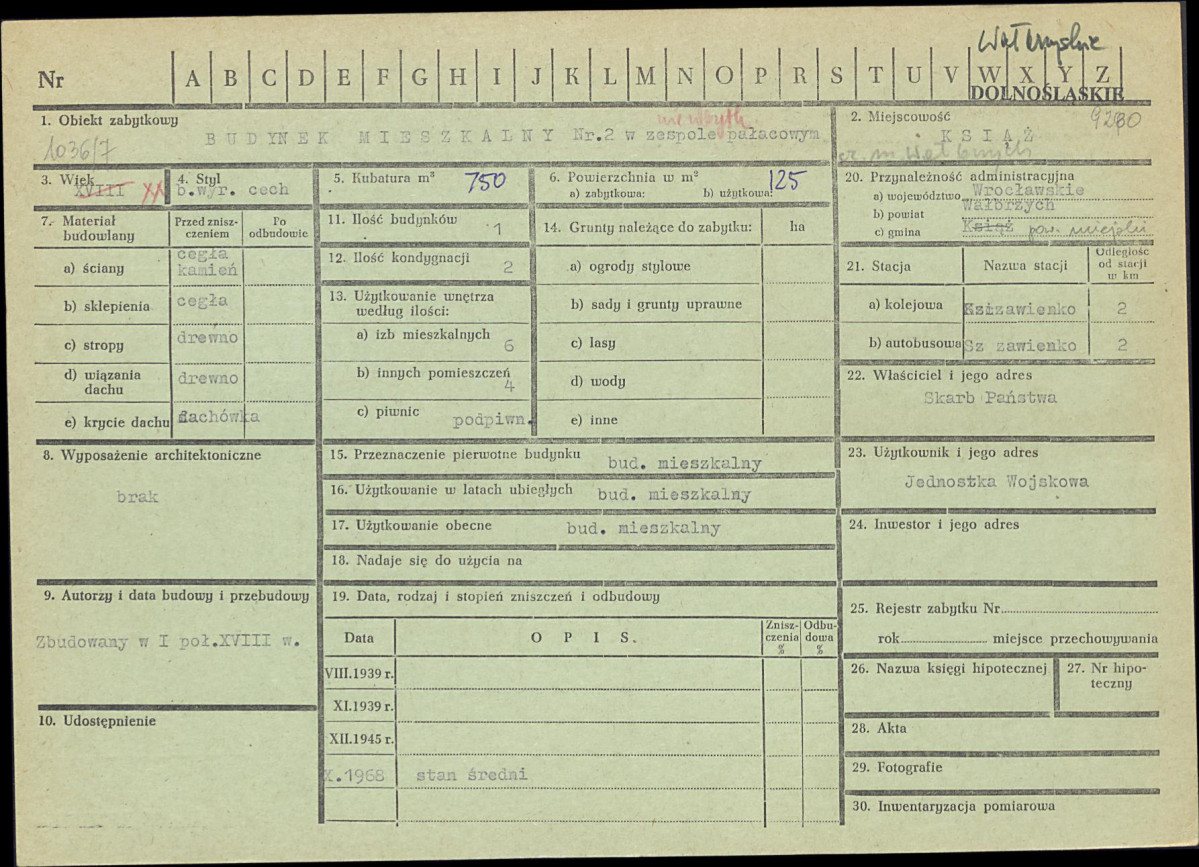 Nr A B C D E F G H I J K L M N O P R S T U V W X Y Z
DOLNOŚLĄSKIE
1. Obiekt zabytkowy
BUDYNEK MIESZKALNY Nr.2 w zespole pałacowym
1036/7
2. Miejscowość
KSIĄŻ
3. Wiek
XVIII XX
4. Styl
b.wyr. cech
5. Kubatura m³ 750
6. Powierzchnia w m² 125
a) zabytkowa: b) użytkowa:
20. Przynależność administracyjna
a) województwo Wrocławskie
b) powiat Wałbrzych
c) gmina Książ pow. miejski
7. Materiał budowlany
Przed zniszczeniem
Po odbudowie
a) ściany cegła kamień
b) sklepienia cegła
c) stropy drewno
d) wiązania dachu drewno
e) krycie dachu dachówka
11. Ilość budynków 1
12. Ilość kondygnacji 2
13. Użytkowanie wnętrza według ilości:
a) izb mieszkalnych 6
b) innych pomieszczeń 4
c) piwnic podpiwn.
14. Grunty należące do zabytku: ha
a) ogrody stylowe
b) sady i grunty uprawne
c) lasy
d) wody
e) inne
21. Stacja Nazwa stacji Odległość od stacji w km
a) kolejowa 2
b) autobusowa Sz zawienko 2
22. Właściciel i jego adres
Skarb Państwa
8. Wyposażenie architektoniczne
brak
15. Przeznaczenie pierwotne budynku bud. mieszkalny
16. Użytkowanie w latach ubiegłych bud. mieszkalny
17. Użytkowanie obecne bud. mieszkalny
18. Nadaje się do użycia na
23. Użytkownik i jego adres
Jednostka Wojskowa
24. Inwestor i jego adres
9. Autorzy i data budowy i przebudowy
Zbudowany w I poł.XVIII w.
10. Udostępnienie
19. Data, rodzaj i stopień zniszczeń i odbudowy
Data OPIS. Zniszczenia % Odbudowa %
VIII.1939 r.
XI.1939 r.
XII.1945 r.
X.1968 stan średni
25. Rejestr zabytku Nr
rok miejsce przechowywania
26. Nazwa księgi hipotecznej
27. Nr hipoteczny
28. Akta
29. Fotografie
30. Inwentaryzacja pomiarowa